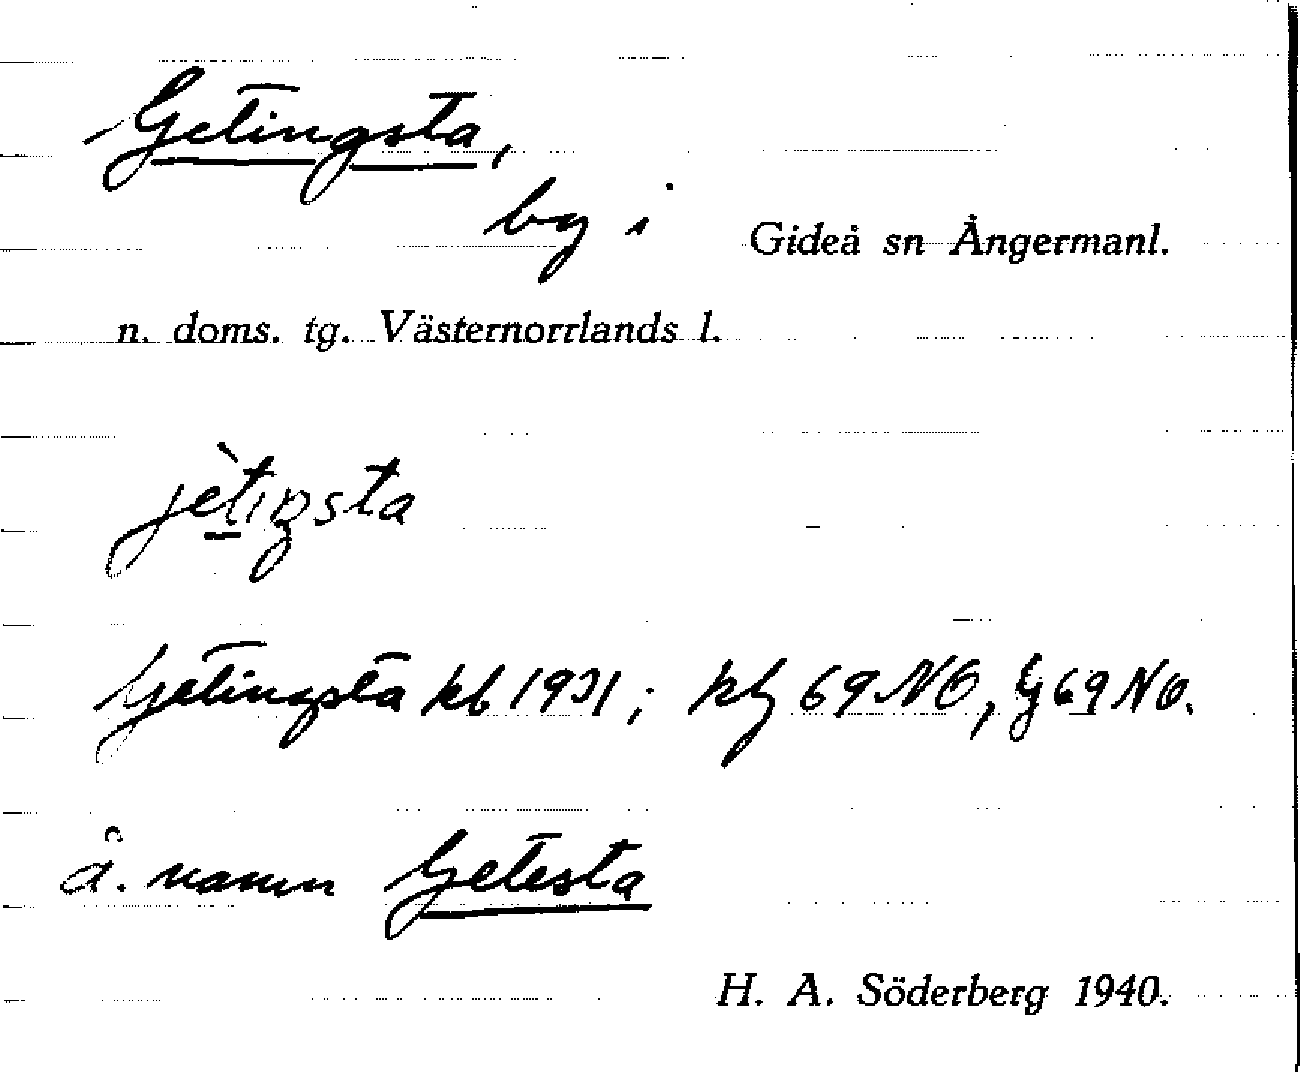 Getingsta,
by i Gideå sn Ångermanl.
n. doms. tg. Västernorrlands l.
jètiŋsta
Getingsta kb 1931; kg 69 NO, Lg 69 NO.
å. namn Getesta
H. A. Söderberg 1940.